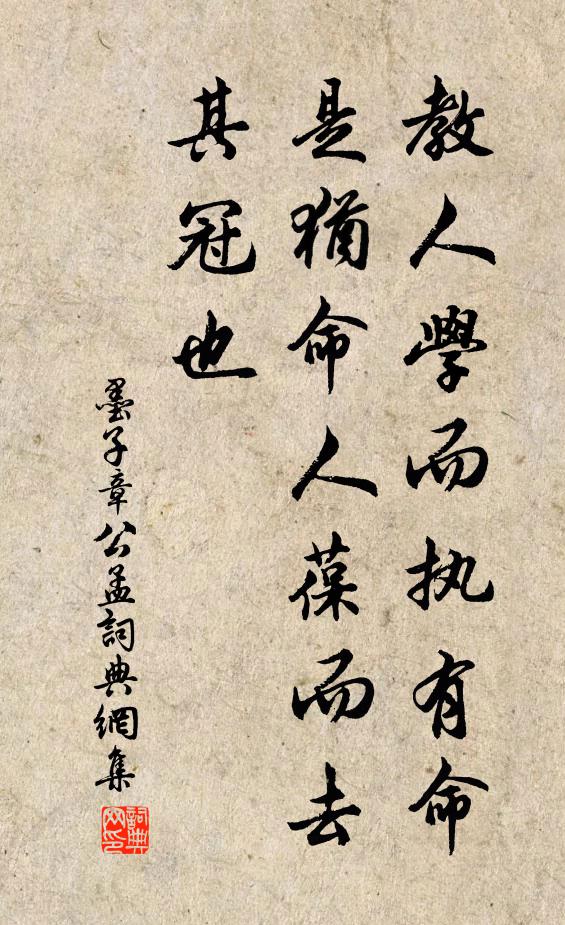 教人學而执有命
是猶命人葆而去
其冠也
墨子章公孟詞典網集
詞典网印